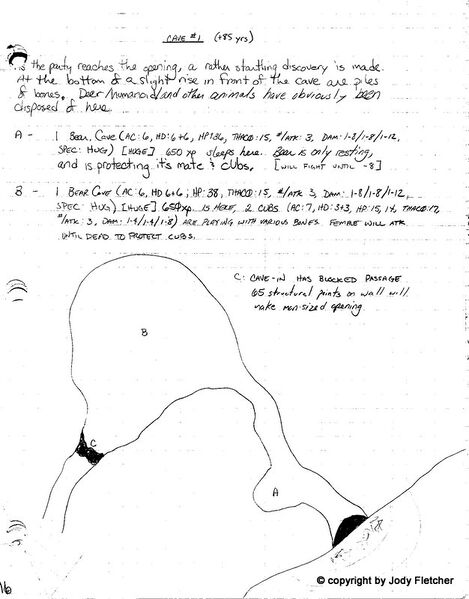 CAVE #1 (+85 yrs)
As the party reaches the opening, a rather startling discovery is made.
At the bottom of a slight rise in front of the cave are piles
of bones. Deer/Humanoid/and other animals have obviously been
disposed of here.
A - 1 Bear, Cave (AC: 6, HD: 6+6, HP: 36, THACO: 15, #/ATK: 3, DAM: 1-8/1-8/1-12,
SPEC: HUG) [HUGE] 650 xp sleeps here. Bear is only resting,
and is protecting it's mate & cubs. [WILL FIGHT UNTIL -8]
B - 1 BEAR CAVE (AC: 6, HD 6+6; HP: 38, THACO: 15, #/ATK 3, DAM: 1-8/1-8/1-12,
SPEC: HUG) [HUGE] 650xp. IS HERE, 2 CUBS (AC: 7, HD: 3+3, HP: 15, 14, THACO: 17,
#/ATK: 3, DAM: 1-4/1-4/1-8) ARE PLAYING WITH VARIOUS BONES. FEMALE WILL ATK
UNTIL DEAD TO PROTECT CUBS.
C: CAVE-IN HAS BLOCKED PASSAGE
65 structural points on wall will
make man-sized opening
B
C
A
16
© copyright by Jody Fletcher